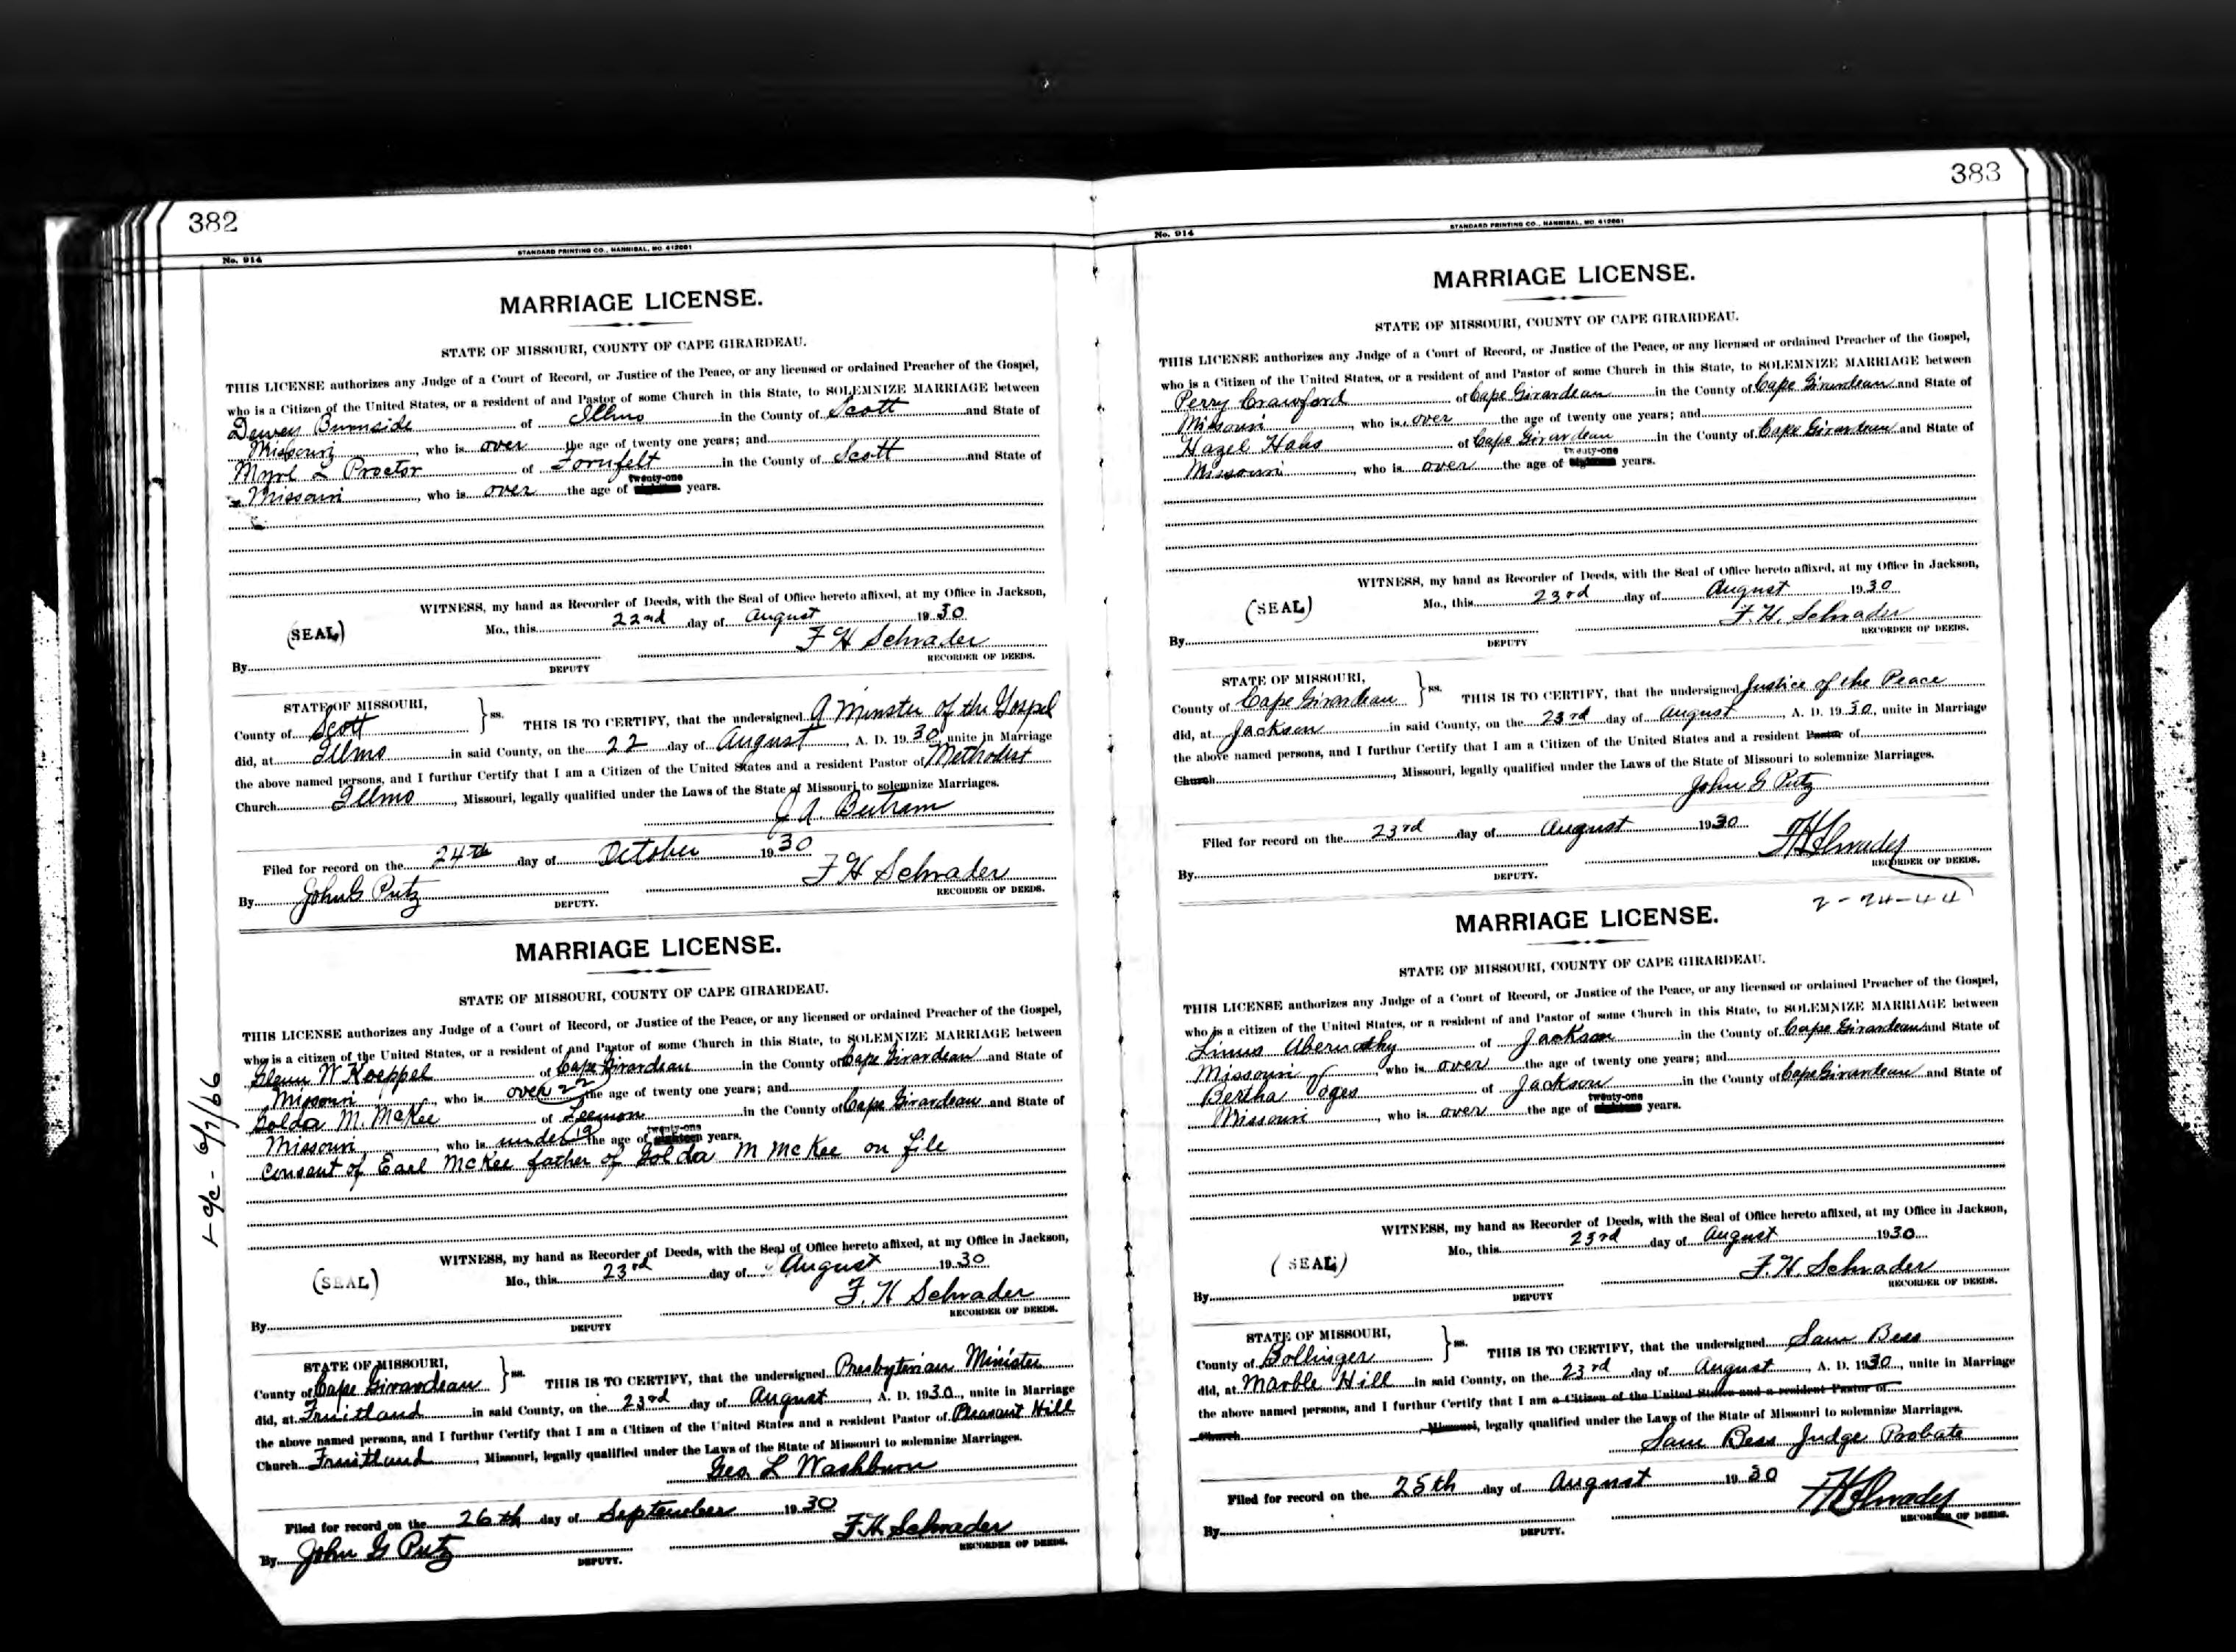 382
No. 914
STANDARD PRINTING CO., HANNIBAL, MO 412001
MARRIAGE LICENSE.
STATE OF MISSOURI, COUNTY OF CAPE GIRARDEAU.
THIS LICENSE authorizes any Judge of a Court of Record, or Justice of the Peace, or any licensed or ordained Preacher of the Gospel,
who is a Citizen of the United States, or a resident of and Pastor of some Church in this State, to SOLEMNIZE MARRIAGE between
Dewey Burnside of Illmo in the County of Scott and State of
Missouri, who is over the age of twenty one years; and
Myrl L Proctor of Fornfelt in the County of Scott and State of
Missouri, who is over the age of twenty-one years.
WITNESS, my hand as Recorder of Deeds, with the Seal of Office hereto affixed, at my Office in Jackson,
(SEAL) Mo., this 22nd day of August 1930
F H Schrader
By DEPUTY RECORDER OF DEEDS.
STATE OF MISSOURI,
County of Scott } ss. THIS IS TO CERTIFY, that the undersigned A Minster of the Gospel
did, at Illmo in said County, on the 22 day of August, A. D. 1930, unite in Marriage
the above named persons, and I furthur Certify that I am a Citizen of the United States and a resident Pastor of Methodist
Church Illmo, Missouri, legally qualified under the Laws of the State of Missouri to solemnize Marriages.
J A. Bertram
Filed for record on the 24th day of October 1930
F H Schrader
By John G Putz DEPUTY. RECORDER OF DEEDS.
MARRIAGE LICENSE.
STATE OF MISSOURI, COUNTY OF CAPE GIRARDEAU.
THIS LICENSE authorizes any Judge of a Court of Record, or Justice of the Peace, or any licensed or ordained Preacher of the Gospel,
who is a citizen of the United States, or a resident of and Pastor of some Church in this State, to SOLEMNIZE MARRIAGE between
Glenn W Koeppel of Cape Girardeau in the County of Cape Girardeau and State of
Missouri, who is over 22 the age of twenty one years; and
Golda M. McKee of Leemon in the County of Cape Girardeau and State of
Missouri who is under 19 the age of twenty-one years.
Consent of Earl McKee father of Golda M McKee on file
1-c/c- 6/7/66
WITNESS, my hand as Recorder of Deeds, with the Seal of Office hereto affixed, at my Office in Jackson,
(SEAL) Mo., this 23rd day of August 1930
F. H Schrader
By DEPUTY RECORDER OF DEEDS.
STATE OF MISSOURI,
County of Cape Girardeau } ss. THIS IS TO CERTIFY, that the undersigned Presbyterian Minister
did, at Fruitland in said County, on the 23rd day of August, A. D. 1930, unite in Marriage
the above named persons, and I furthur Certify that I am a Citizen of the United States and a resident Pastor of Pleasant Hill
Church Fruitland, Missouri, legally qualified under the Laws of the State of Missouri to solemnize Marriages.
Geo. L Washburn
Filed for record on the 26th day of September 1930
F. H. Schrader
By John G Putz DEPUTY. RECORDER OF DEEDS.
383
No. 914
STANDARD PRINTING CO., HANNIBAL, MO 412001
MARRIAGE LICENSE.
STATE OF MISSOURI, COUNTY OF CAPE GIRARDEAU.
THIS LICENSE authorizes any Judge of a Court of Record, or Justice of the Peace, or any licensed or ordained Preacher of the Gospel,
who is a Citizen of the United States, or a resident of and Pastor of some Church in this State, to SOLEMNIZE MARRIAGE between
Perry Crawford of Cape Girardeau in the County of Cape Girardeau and State of
Missouri, who is over the age of twenty one years; and
Hazel Hahs of Cape Girardeau in the County of Cape Girardeau and State of
Missouri, who is over the age of twenty-one years.
WITNESS, my hand as Recorder of Deeds, with the Seal of Office hereto affixed, at my Office in Jackson,
(SEAL) Mo., this 23rd day of August 1930
F. H. Schrader
By DEPUTY RECORDER OF DEEDS.
STATE OF MISSOURI,
County of Cape Girardeau } ss. THIS IS TO CERTIFY, that the undersigned Justice of the Peace
did, at Jackson in said County, on the 23rd day of August, A. D. 1930, unite in Marriage
the above named persons, and I furthur Certify that I am a Citizen of the United States and a resident Pastor of
Church, Missouri, legally qualified under the Laws of the State of Missouri to solemnize Marriages.
John G Putz
Filed for record on the 23rd day of August 1930
F H Schrader
By DEPUTY. RECORDER OF DEEDS.
2-24-44
MARRIAGE LICENSE.
STATE OF MISSOURI, COUNTY OF CAPE GIRARDEAU.
THIS LICENSE authorizes any Judge of a Court of Record, or Justice of the Peace, or any licensed or ordained Preacher of the Gospel,
who is a citizen of the United States, or a resident of and Pastor of some Church in this State, to SOLEMNIZE MARRIAGE between
Linus Abernathy of Jackson in the County of Cape Girardeau and State of
Missouri, who is over the age of twenty one years; and
Bertha Voges of Jackson in the County of Cape Girardeau and State of
Missouri, who is over the age of twenty-one years.
WITNESS, my hand as Recorder of Deeds, with the Seal of Office hereto affixed, at my Office in Jackson,
(SEAL) Mo., this 23rd day of August 1930
F. H. Schrader
By DEPUTY RECORDER OF DEEDS.
STATE OF MISSOURI,
County of Bollinger } ss. THIS IS TO CERTIFY, that the undersigned Sam Bess
did, at Marble Hill in said County, on the 23rd day of August, A. D. 1930, unite in Marriage
the above named persons, and I furthur Certify that I am a Citizen of the United States and a resident Pastor of
Church Missouri, legally qualified under the Laws of the State of Missouri to solemnize Marriages.
Sam Bess Judge Probate
Filed for record on the 25th day of August 1930
F H Schrader
By DEPUTY. RECORDER OF DEEDS.